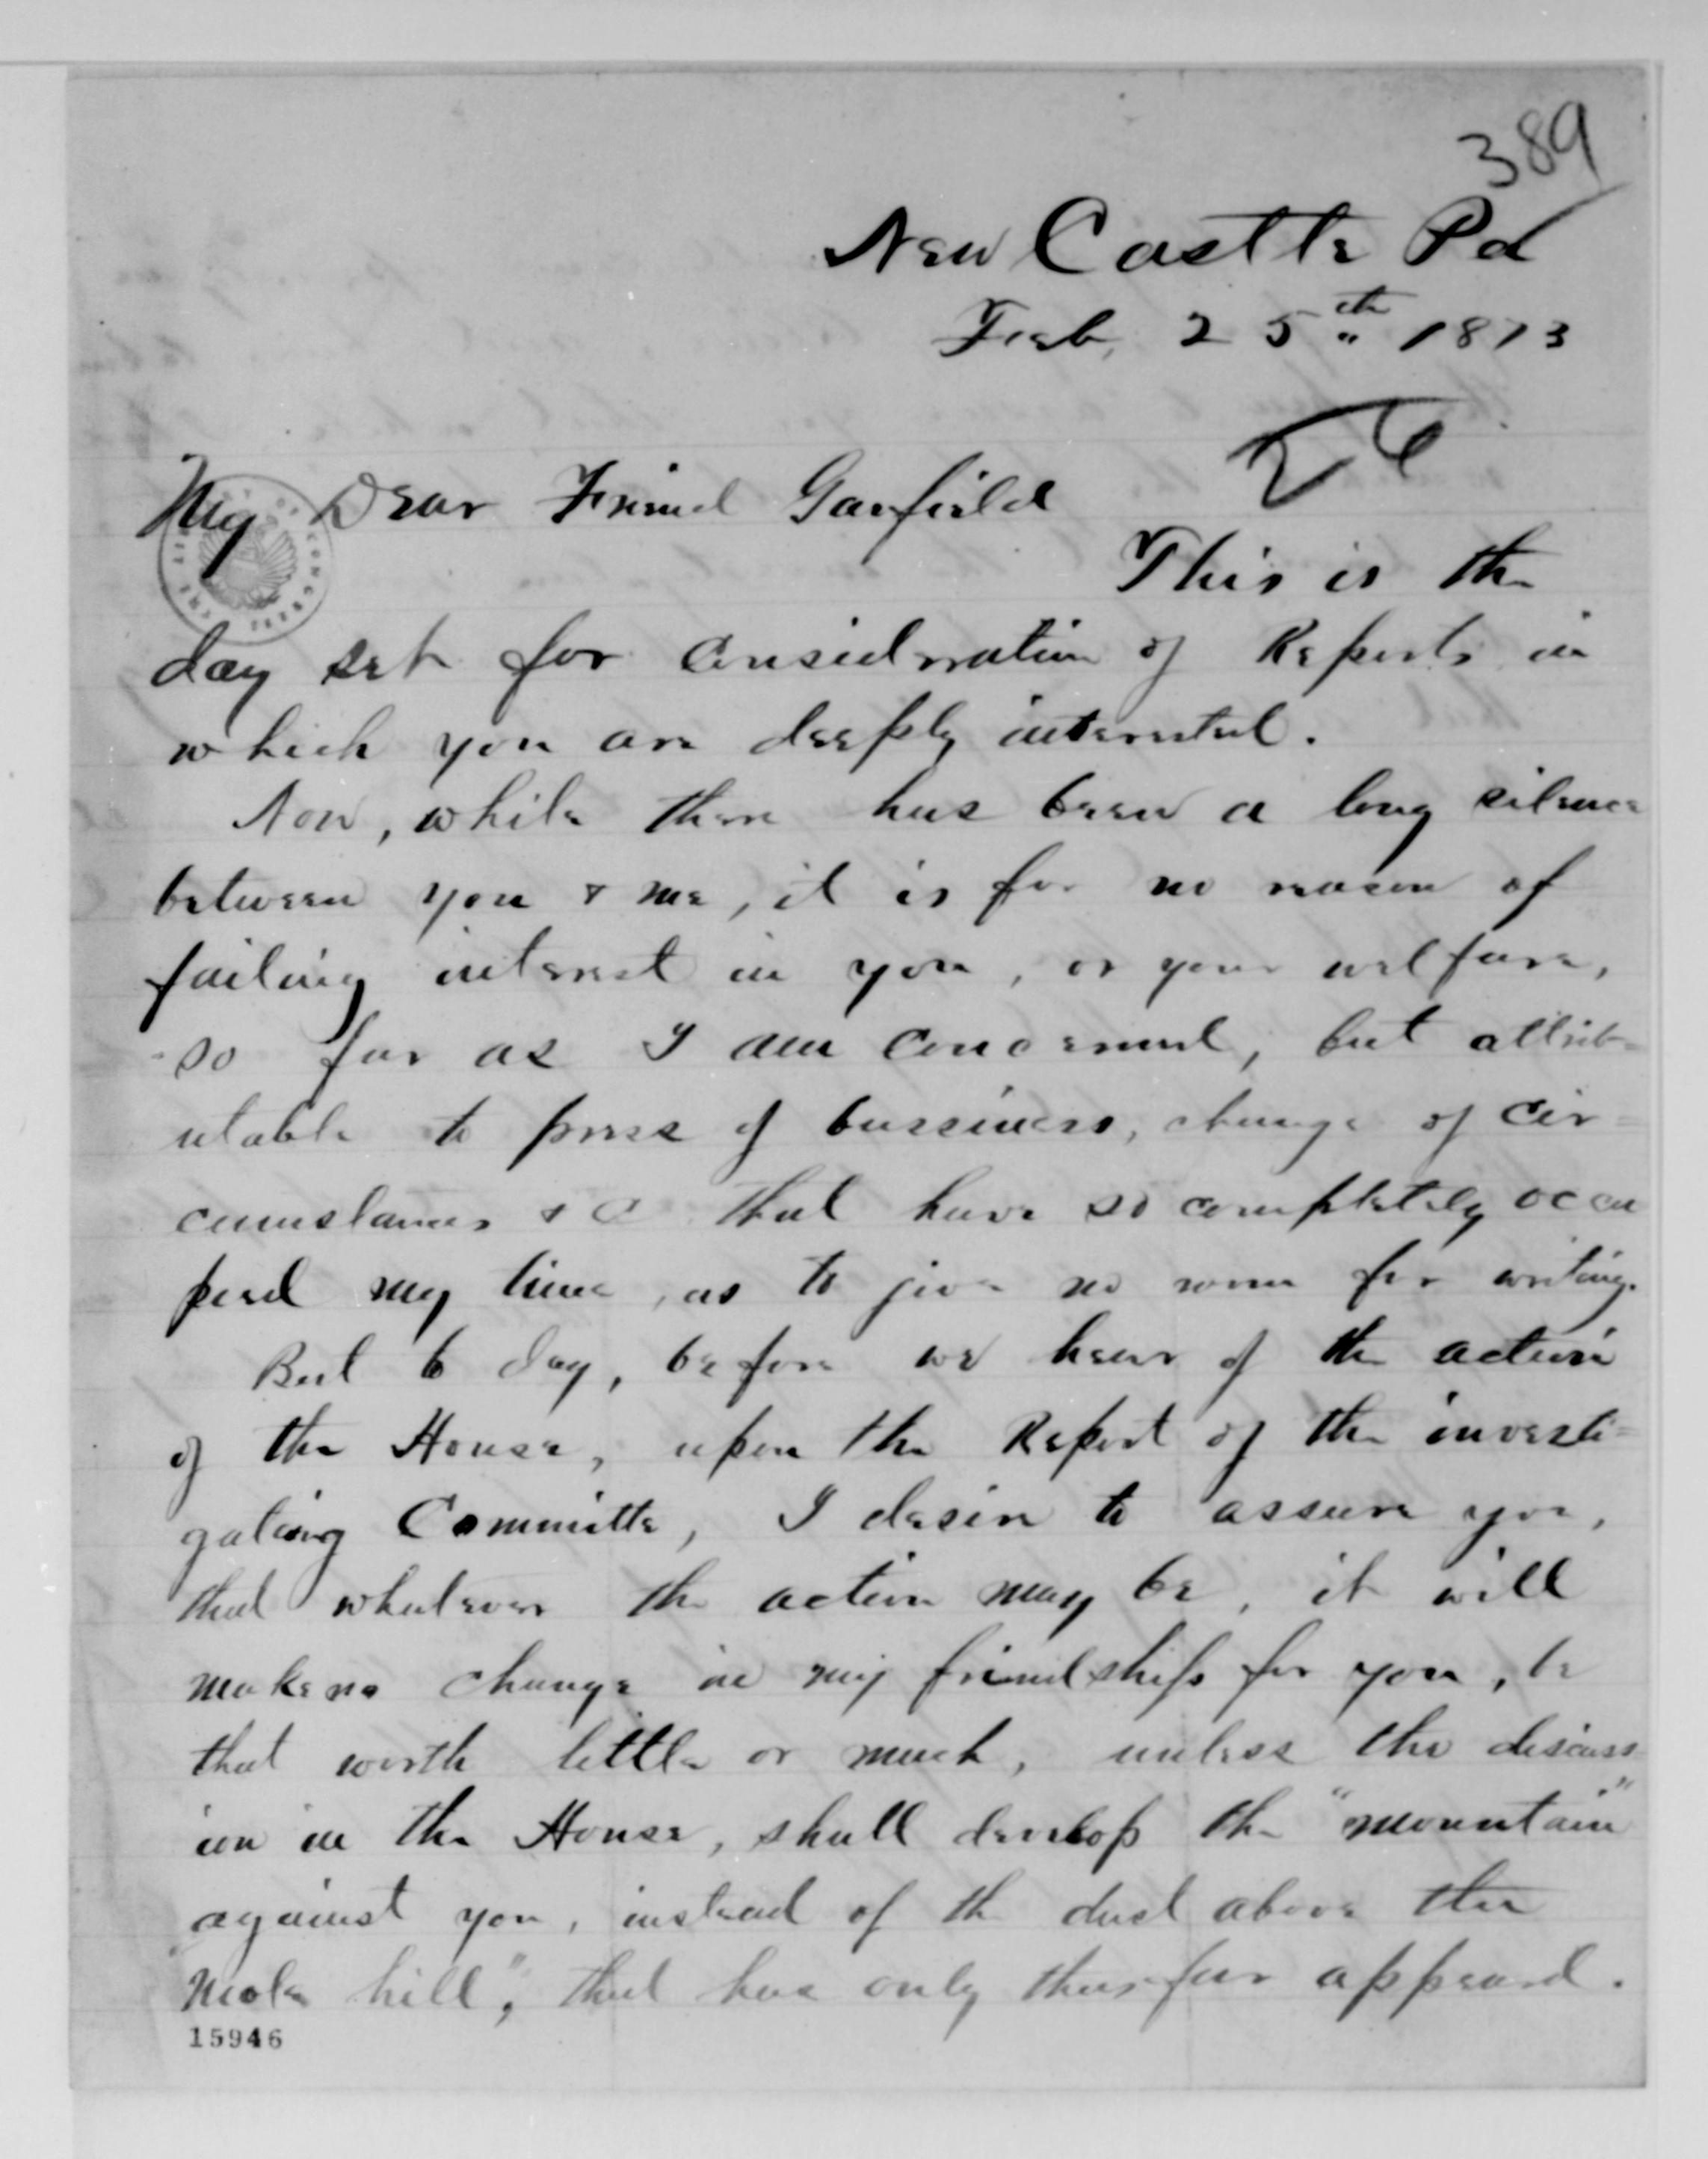 389
New Castle Pa
Feb, 25th 1873
My Dear Friend Garfield
This is the
day set for consideration of Reports in
which you are deeply interested.
Now, while there has been a long silence
between you & me, it is for no reason of
failing interest in you, or your welfare,
so far as I am concerned, but attrib-
utable to press of bussiness, change of cir=
cumstances &c that have so completely occu
pied my time, as to give no room for writing.
But to day, before we hear of the action
of the House, upon the Report of the investi=
gating Committe, I desire to assure you,
that whatever the action may be, it will
make no change in my friendship for you, be
that worth little or much, unless the discuss
ion in the House, shall develop the "mountain"
against you, instead of the dust above the
"mole hill", that has only thus far appeared.
15946